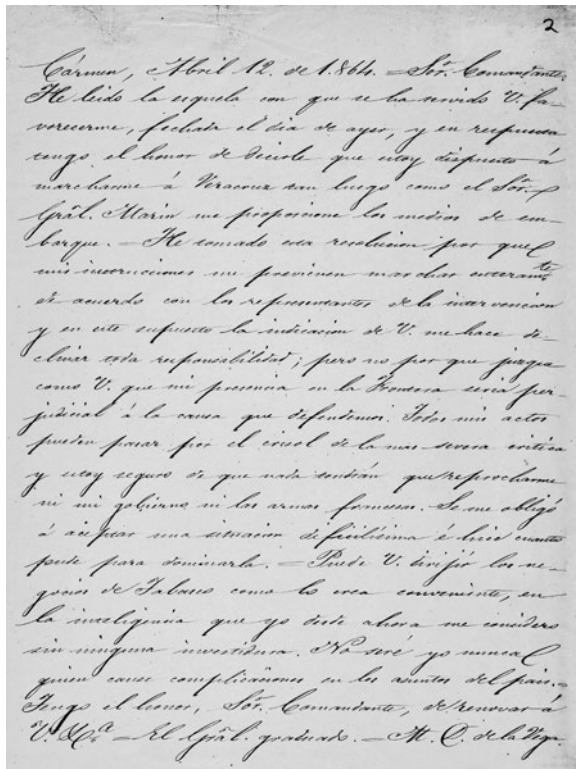 2
Cármen, Abril 12. de 1.864. = Sor. Comandante:
He leido la esquela con que se ha servido V. fa-
vorecerme, fechada el dia de ayer, y en respuesta
tengo el honor de decirle que estoy dispuesto á
marcharme á Veracruz tan luego como el Sor.
Gräl. Marin me proporcione los medios de em-
barque. = He tomado esta resolucion por que
mis instrucciones me previenen marchar enteramte.
de acuerdo con los representantes de la intervencion
y en este supuesto la indicacion de V. me hace de-
clinar toda responsabilidad; pero no por que juzgue
como V. que mi presencia en la Frontera seria per-
judicial á la causa que defendemos. Todos mis actos
pueden pasar por el crisol de la mas severa critica
y estoy seguro de que nada tendrán que reprocharme
ni mi gobierno ni las armas francesas. Se me obligó
á aceptar una situacion dificilísima é hice cuanto
pude para dominarla. = Puede V. dirijir los ne-
gocios de Tabasco como lo crea conveniente, en
la inteligencia que yo desde ahora me considero
sin ninguna investidura. No seré yo nunca
quien cause complicaciones en los asuntos del pais. =
Tengo el honor, Sor. Comandante, de renovar á
V. &a. = El Gräl. graduado. = M. D. de la Vega.